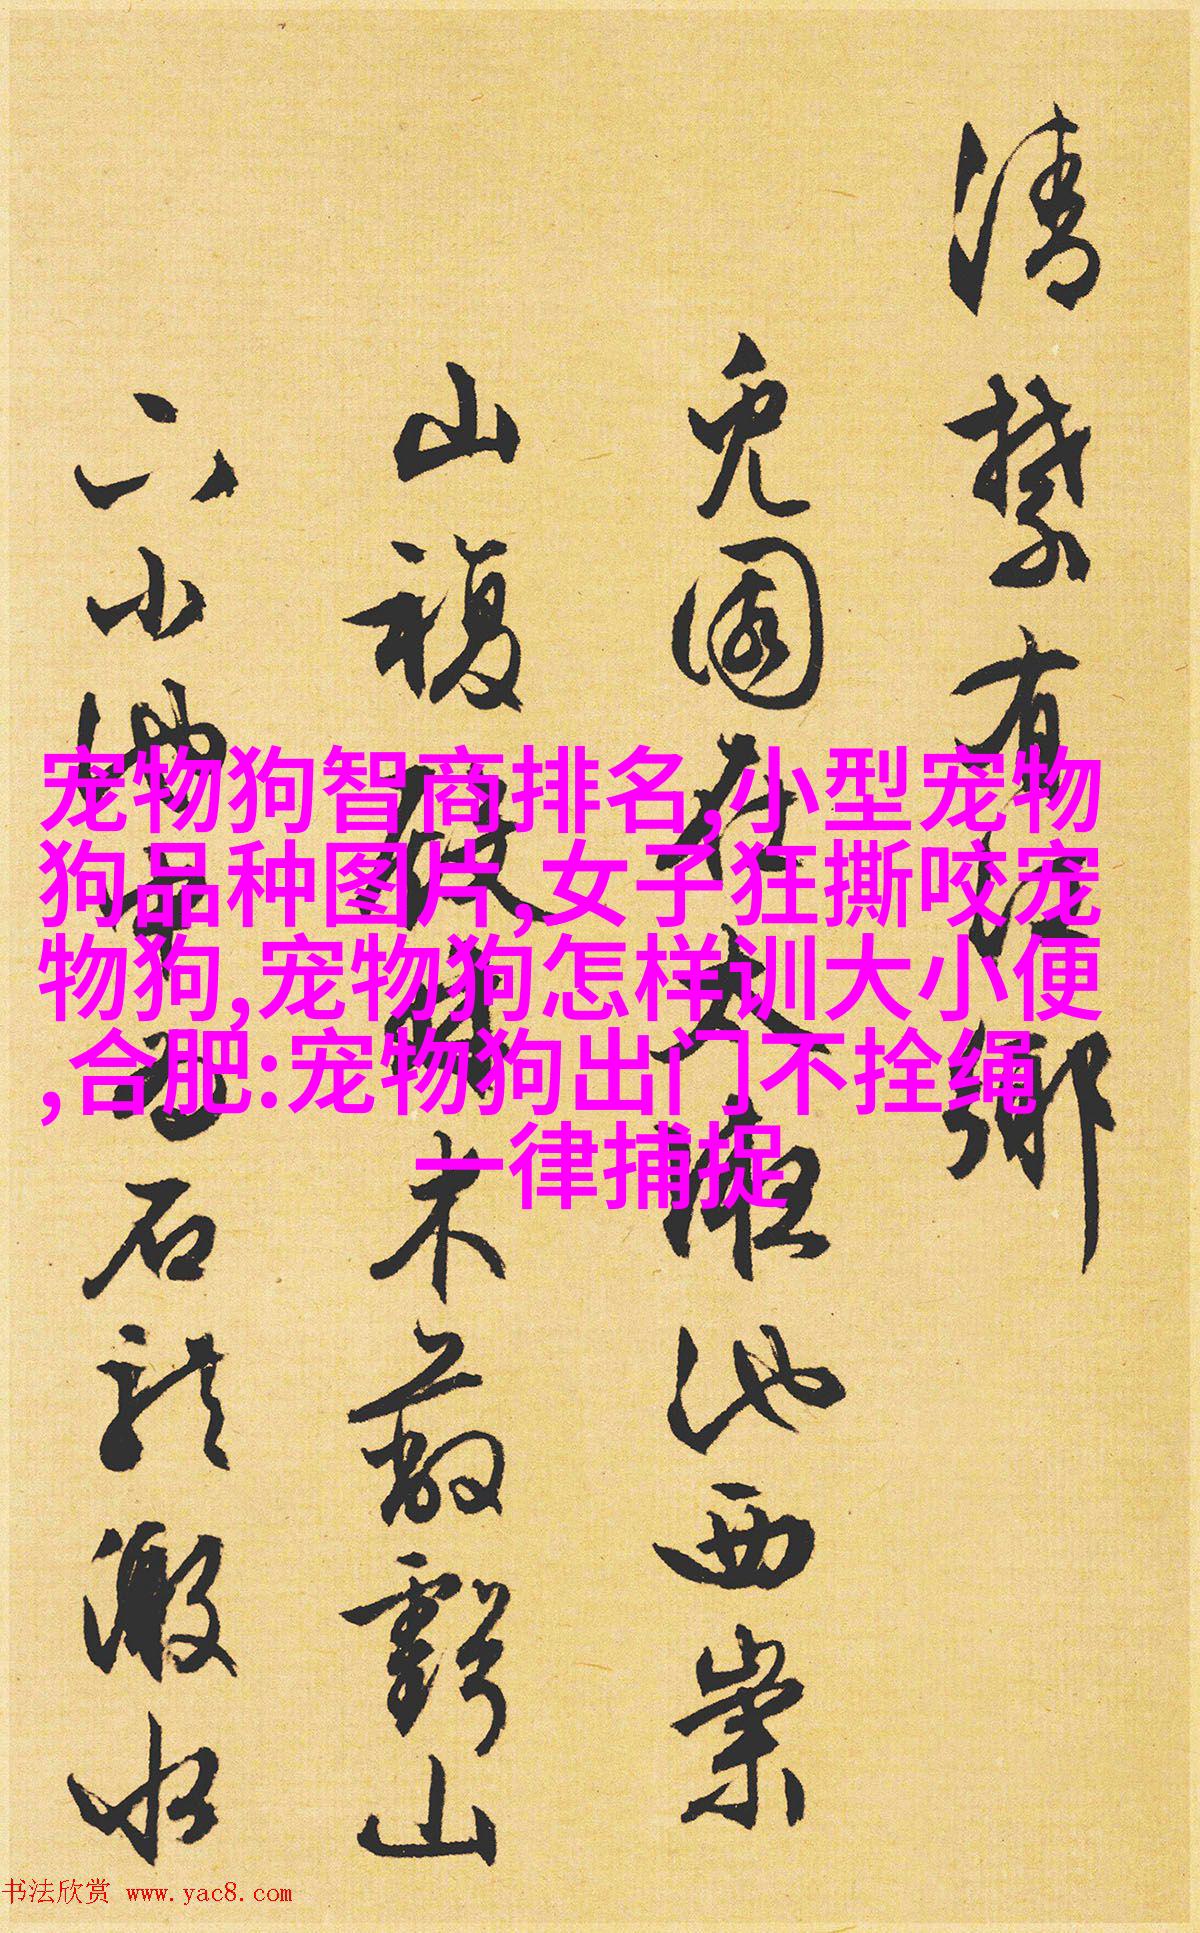 清禁有江鄉
兎園在太液池西崇
山複磵林木蓊鬱山
下小池
石龍激水
宠物狗智商排名,小型宠物
狗品种图片,女子狂撕咬宠
物狗,宠物狗怎样训大小便
,合肥:宠物狗出门不拴绳
一律捕捉
书法欣赏 www.yac8.com